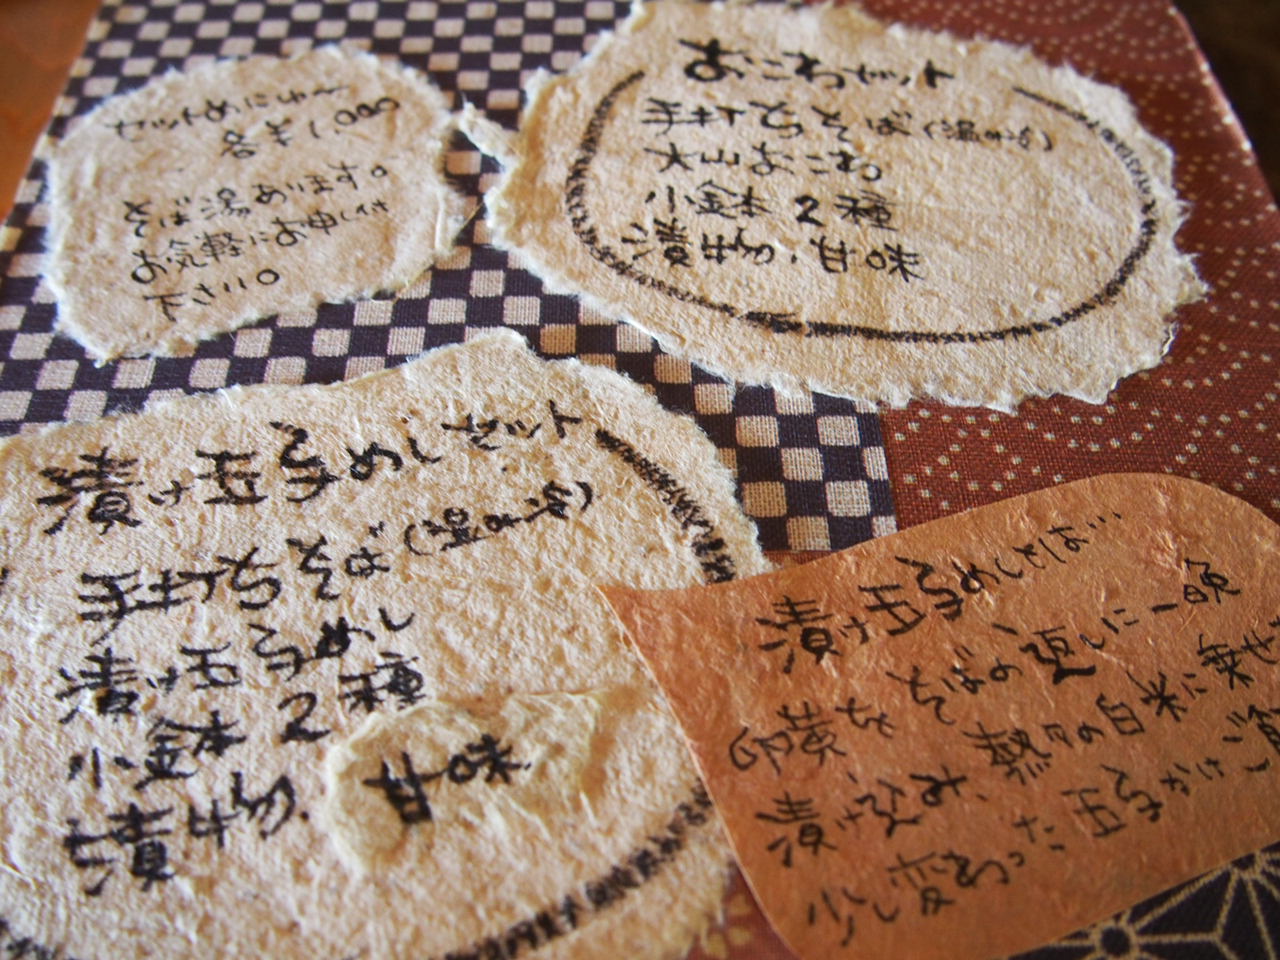 セットめにゅー
各¥1.000
そば湯あります。
お気軽にお申し付
下さい。
おこわセット
手打ちそば(温または冷)
大山おこわ
小鉢2種
漬物・甘味
漬け玉子めしセット
手打ちそば(温または冷)
漬け玉子めし
小鉢2種
漬物.
甘味
漬け玉子めしとは…
卵黄をそばの返しに一晩
漬け込み、熱々の白米に乗せ
少し変わった玉子かけご飯